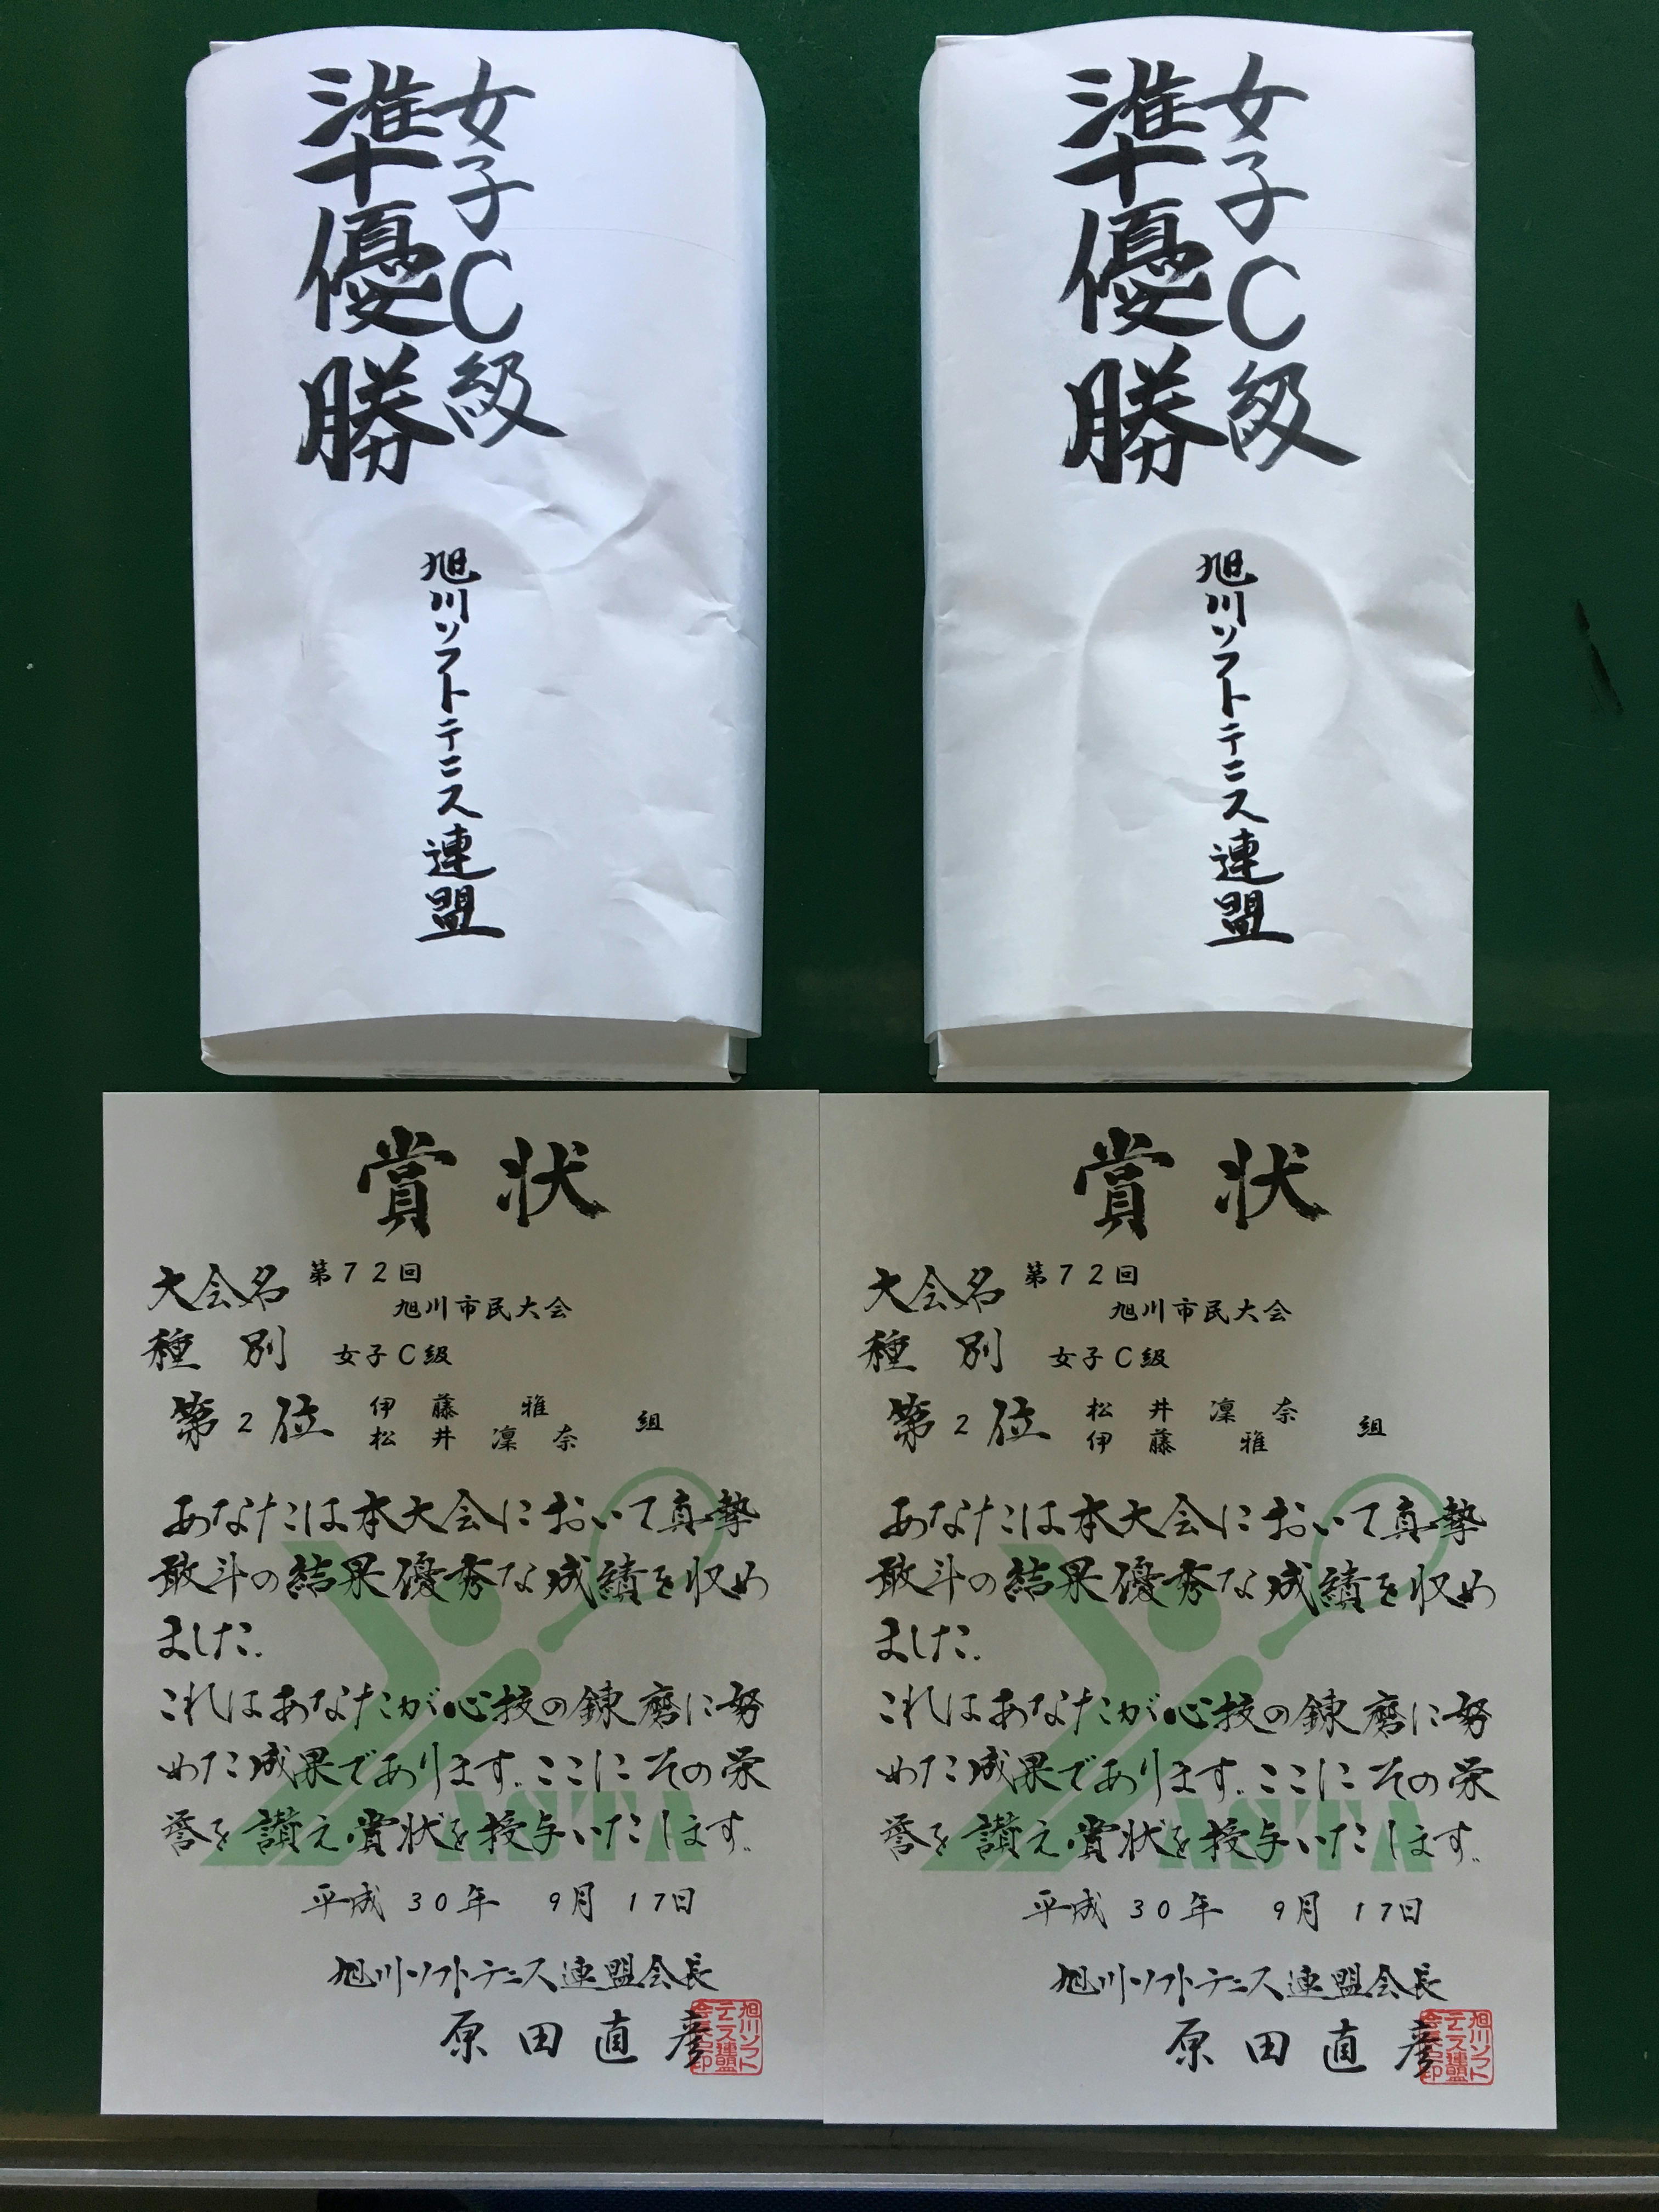 女子C級
準優勝
旭川ソフトテニス連盟
女子C級
準優勝
旭川ソフトテニス連盟
賞状
大会名 第72回
旭川市民大会
種別 女子C級
第2位 伊藤 雅
松井 凜奈 組
あなたは本大会において真摯
敢斗の結果優秀な成績を収め
ました.
これはあなたが心技の錬磨に努
めた成果であります.ここにその栄
誉を讃え賞状を授与いたします.
ASTA
平成 30年 9月 17日
旭川ソフトテニス連盟会長
原田直彦
旭川ソフト
テニス連盟
会長之印
賞状
大会名 第72回
旭川市民大会
種別 女子C級
第2位 松井 凜奈
伊藤 雅 組
あなたは本大会において真摯
敢斗の結果優秀な成績を収め
ました.
これはあなたが心技の錬磨に努
めた成果であります.ここにその栄
誉を讃え賞状を授与いたします.
ASTA
平成 30年 9月 17日
旭川ソフトテニス連盟会長
原田直彦
旭川ソフト
テニス連盟